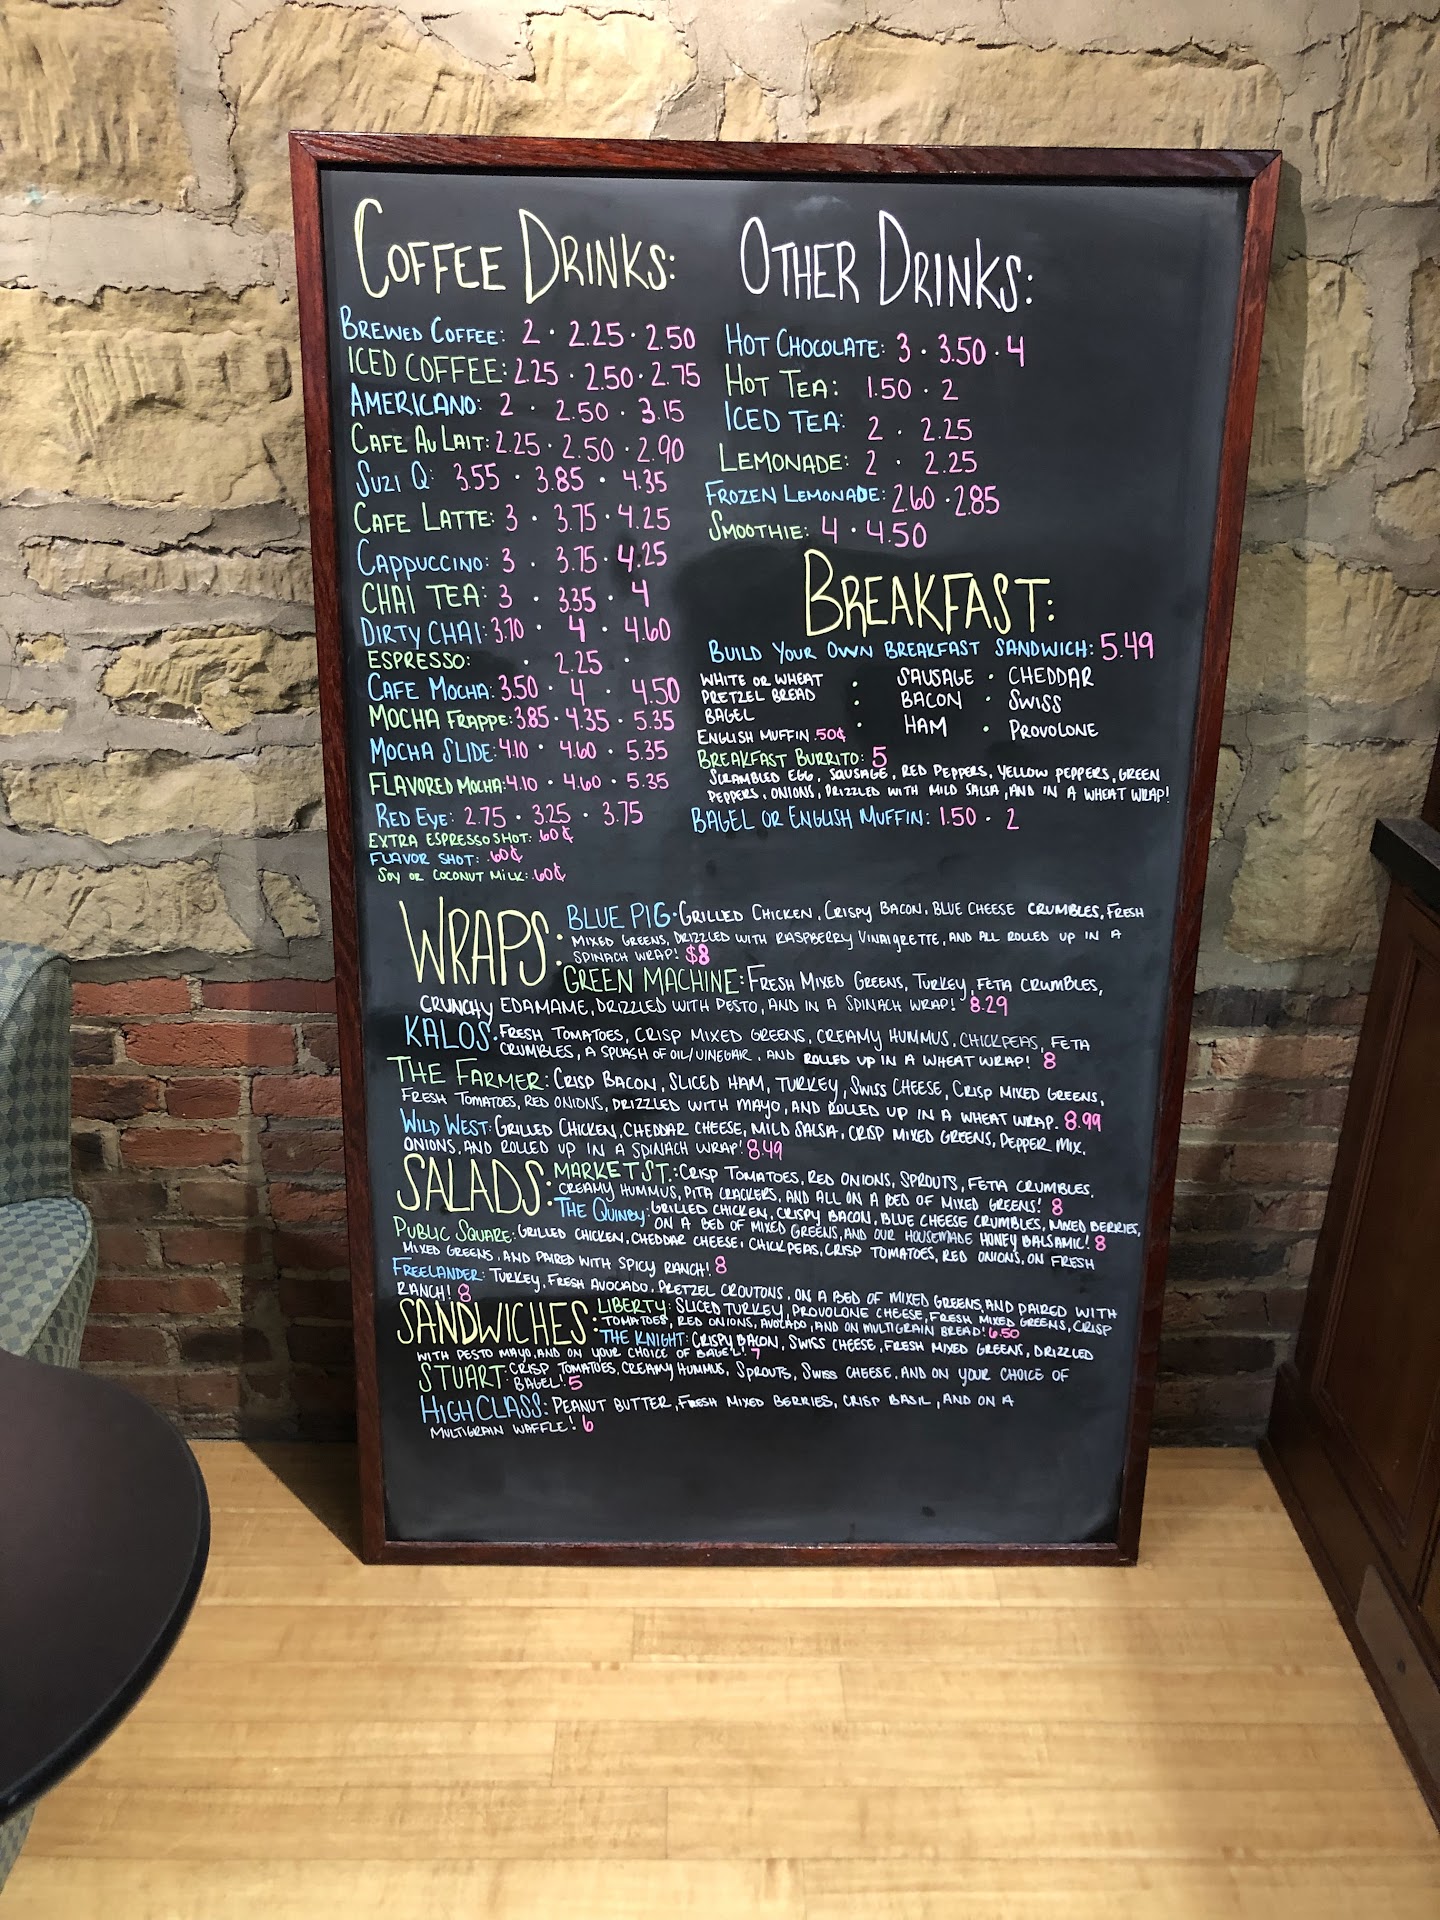 COFFEE DRINKS:
BREWED COFFEE: 2 · 2.25 · 2.50
ICED COFFEE: 2.25 · 2.50 · 2.75
AMERICANO: 2 · 2.50 · 3.15
CAFE AU LAIT: 2.25 · 2.50 · 2.90
SUZI Q: 3.55 · 3.85 · 4.35
CAFE LATTE: 3 · 3.75 · 4.25
CAPPUCCINO: 3 · 3.75 · 4.25
CHAI TEA: 3 · 3.35 · 4
DIRTY CHAI: 3.70 · 4 · 4.60
ESPRESSO: · 2.25 ·
CAFE MOCHA: 3.50 · 4 · 4.50
MOCHA FRAPPE: 3.85 · 4.35 · 5.35
MOCHA SLIDE: 4.10 · 4.60 · 5.35
FLAVORED MOCHA: 4.10 · 4.60 · 5.35
RED EYE: 2.75 · 3.25 · 3.75
EXTRA ESPRESSO SHOT: .60¢
FLAVOR SHOT: .60¢
SOY OR COCONUT MILK: .60¢
OTHER DRINKS:
HOT CHOCOLATE: 3 · 3.50 · 4
HOT TEA: 1.50 · 2
ICED TEA: 2 · 2.25
LEMONADE: 2 · 2.25
FROZEN LEMONADE: 2.60 · 2.85
SMOOTHIE: 4 · 4.50
BREAKFAST:
BUILD YOUR OWN BREAKFAST SANDWICH: 5.49
WHITE OR WHEAT · SAUSAGE · CHEDDAR
PRETZEL BREAD · BACON · SWISS
BAGEL · HAM · PROVOLONE
ENGLISH MUFFIN .50¢
BREAKFAST BURRITO: 5
SCRAMBLED EGG, SAUSAGE, RED PEPPERS, YELLOW PEPPERS, GREEN
PEPPERS, ONIONS, DRIZZLED WITH MILD SALSA, AND IN A WHEAT WRAP!
BAGEL OR ENGLISH MUFFIN: 1.50 · 2
WRAPS: BLUE PIG · GRILLED CHICKEN, CRISPY BACON, BLUE CHEESE CRUMBLES, FRESH
MIXED GREENS, DRIZZLED WITH RASPBERRY VINAIGRETTE, AND ALL ROLLED UP IN A
SPINACH WRAP! $8
GREEN MACHINE: FRESH MIXED GREENS, TURKEY, FETA CRUMBLES,
CRUNCHY EDAMAME, DRIZZLED WITH PESTO, AND IN A SPINACH WRAP! 8.29
KALOS: FRESH TOMATOES, CRISP MIXED GREENS, CREAMY HUMMUS, CHICKPEAS, FETA
CRUMBLES, A SPLASH OF OIL/VINEGAR, AND ROLLED UP IN A WHEAT WRAP! 8
THE FARMER: CRISP BACON, SLICED HAM, TURKEY, SWISS CHEESE, CRISP MIXED GREENS,
FRESH TOMATOES, RED ONIONS, DRIZZLED WITH MAYO, AND ROLLED UP IN A WHEAT WRAP. 8.99
WILD WEST: GRILLED CHICKEN, CHEDDAR CHEESE, MILD SALSA, CRISP MIXED GREENS, PEPPER MIX,
ONIONS, AND ROLLED UP IN A SPINACH WRAP! 8.49
SALADS: MARKET ST.: CRISP TOMATOES, RED ONIONS, SPROUTS, FETA CRUMBLES,
CREAMY HUMMUS, PITA CRACKERS, AND ALL ON A BED OF MIXED GREENS! 8
THE QUINBY: GRILLED CHICKEN, CRISPY BACON, BLUE CHEESE CRUMBLES, MIXED BERRIES,
ON A BED OF MIXED GREENS, AND OUR HOUSEMADE HONEY BALSAMIC! 8
PUBLIC SQUARE: GRILLED CHICKEN, CHEDDAR CHEESE, CHICKPEAS, CRISP TOMATOES, RED ONIONS, ON FRESH
MIXED GREENS, AND PAIRED WITH SPICY RANCH! 8
FREELANDER: TURKEY, FRESH AVOCADO, PRETZEL CROUTONS, ON A BED OF MIXED GREENS, AND PAIRED WITH
RANCH! 8
SANDWICHES: LIBERTY: SLICED TURKEY, PROVOLONE CHEESE, FRESH MIXED GREENS, CRISP
TOMATOES, RED ONIONS, AVOCADO, AND ON MULTIGRAIN BREAD! 6.50
THE KNIGHT: CRISPY BACON, SWISS CHEESE, FRESH MIXED GREENS, DRIZZLED
WITH PESTO MAYO, AND ON YOUR CHOICE OF BAGEL! 7
STUART: CRISP TOMATOES, CREAMY HUMMUS, SPROUTS, SWISS CHEESE, AND ON YOUR CHOICE OF
BAGEL! 5
HIGH CLASS: PEANUT BUTTER, FRESH MIXED BERRIES, CRISP BASIL, AND ON A
MULTIGRAIN WAFFLE! 6